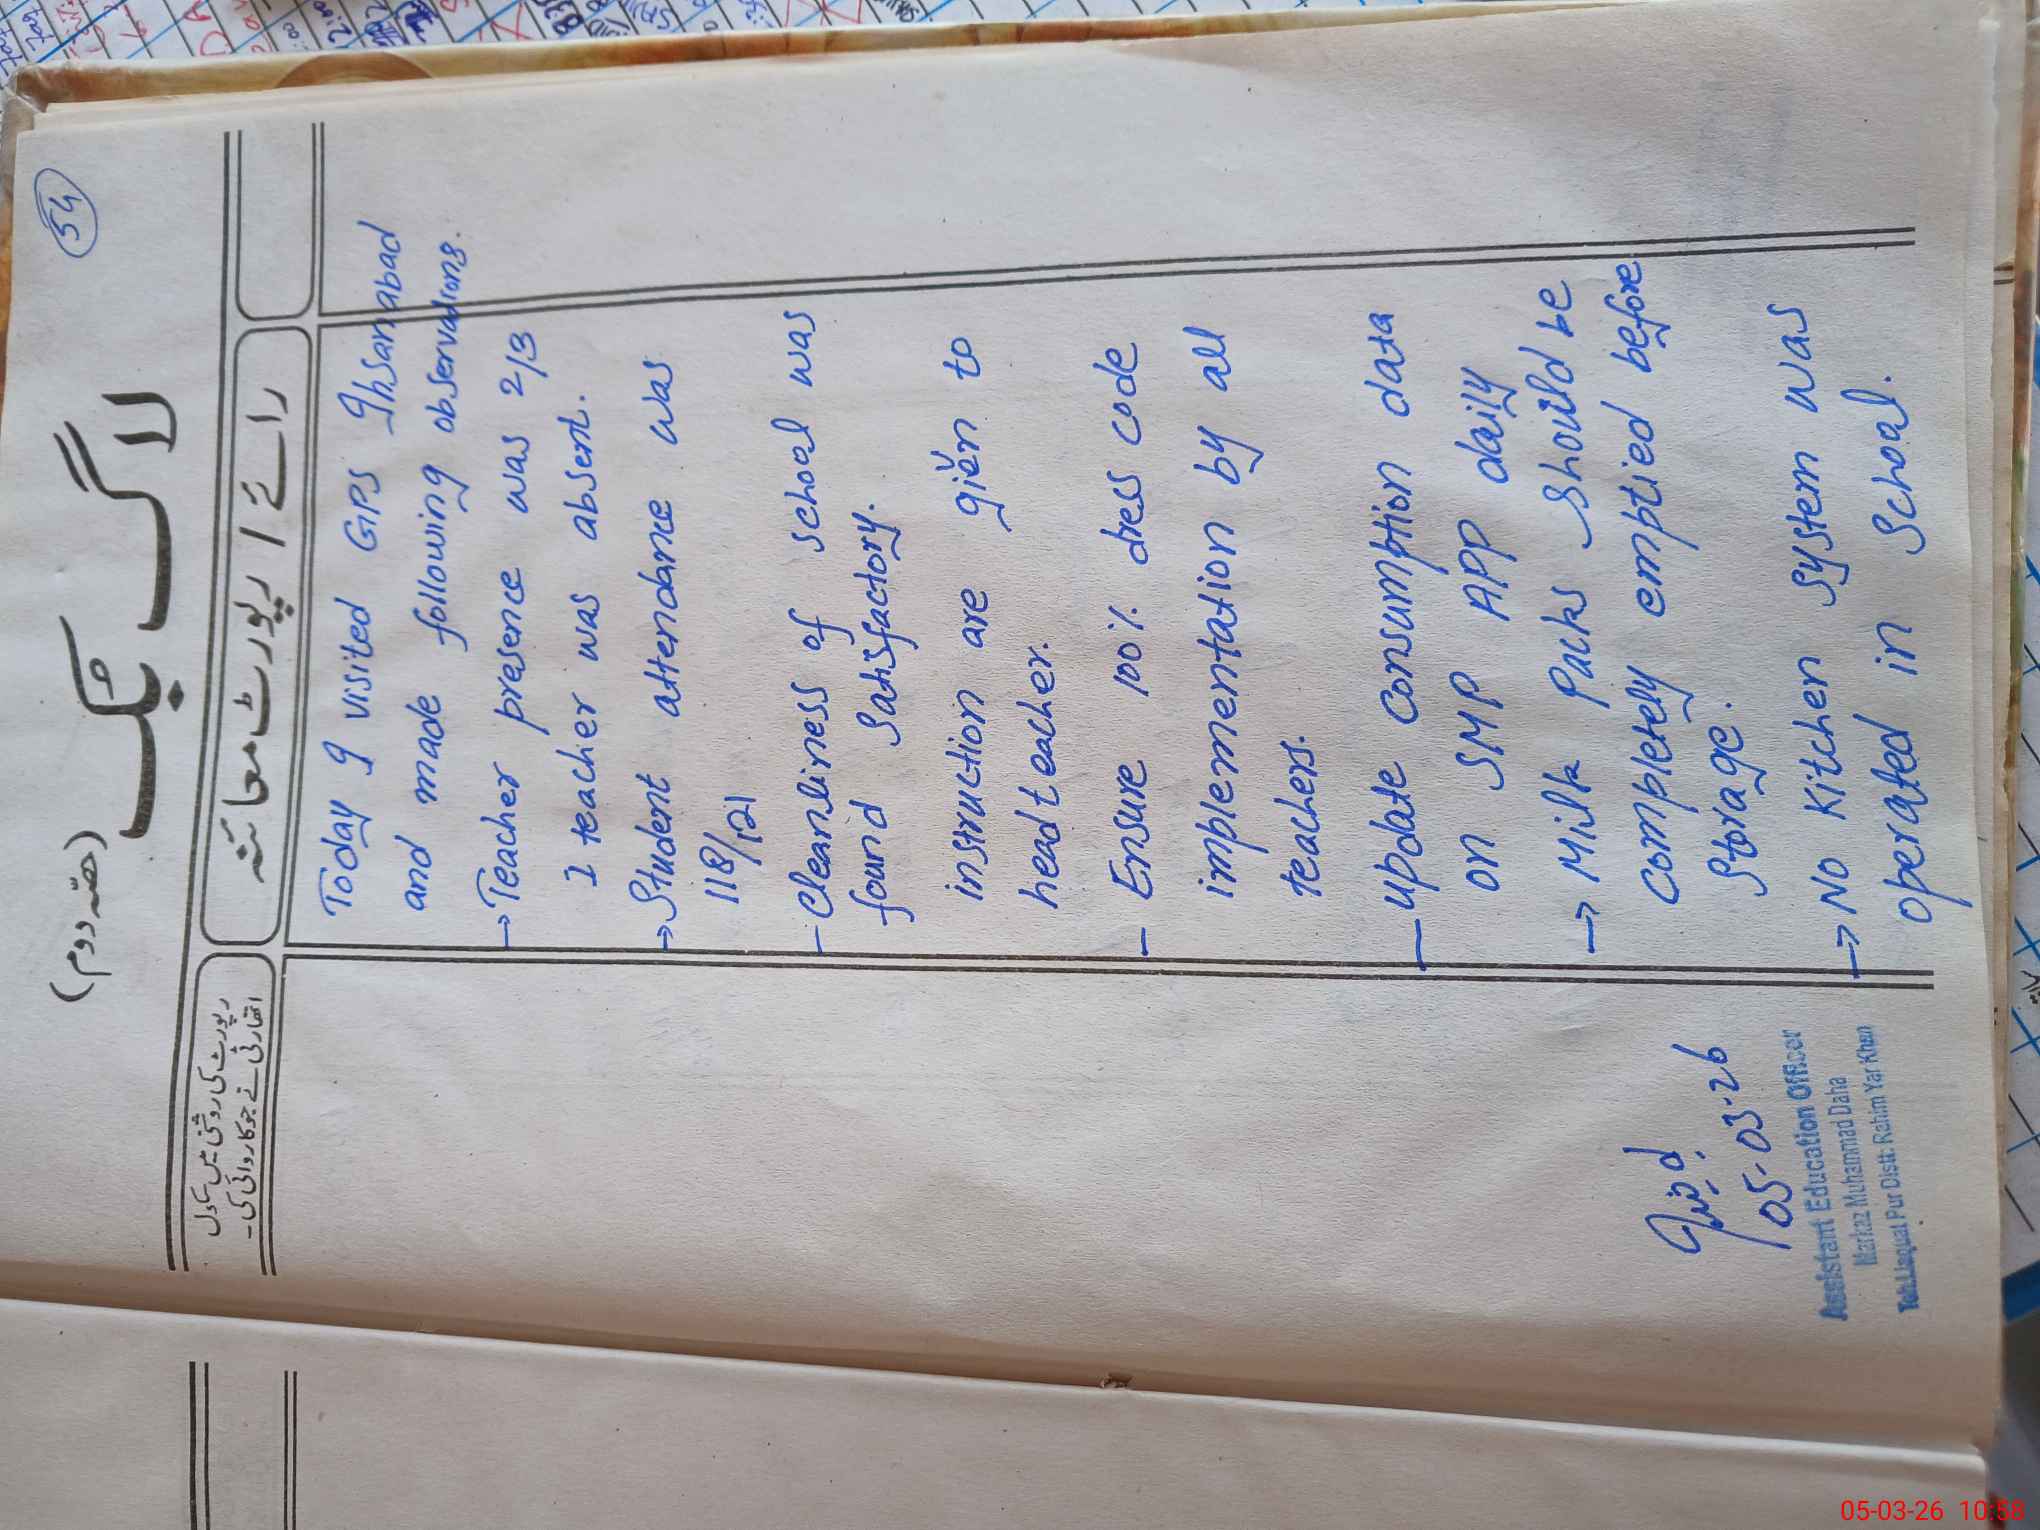 54
(حصّہ دوم)
لاگ بک
رپورٹ کی روشنی میں سکول
اتھارٹی نے جو کاروائی کی۔
رائے / رپورٹ معائنہ
Today I visited GPS Ihsanabad
and made following observations.
→ Teacher presence was 2/3
1 teacher was absent.
→ Student attendance was
118/121
- Cleanliness of school was
found satisfactory.
instruction are given to
head teacher.
- Ensure 100% dress code
implementation by all
teachers.
- update consumption data
on SMP APP daily
→ Milk Packs should be
completely emptied before
storage.
→ No Kitchen system was
operated in School.
05-03-26
Assistant Education Officer
Markaz Muhammad Daha
Teh.Liaquat Pur Distt. Rahim Yar Khan
05-03-26 10:58